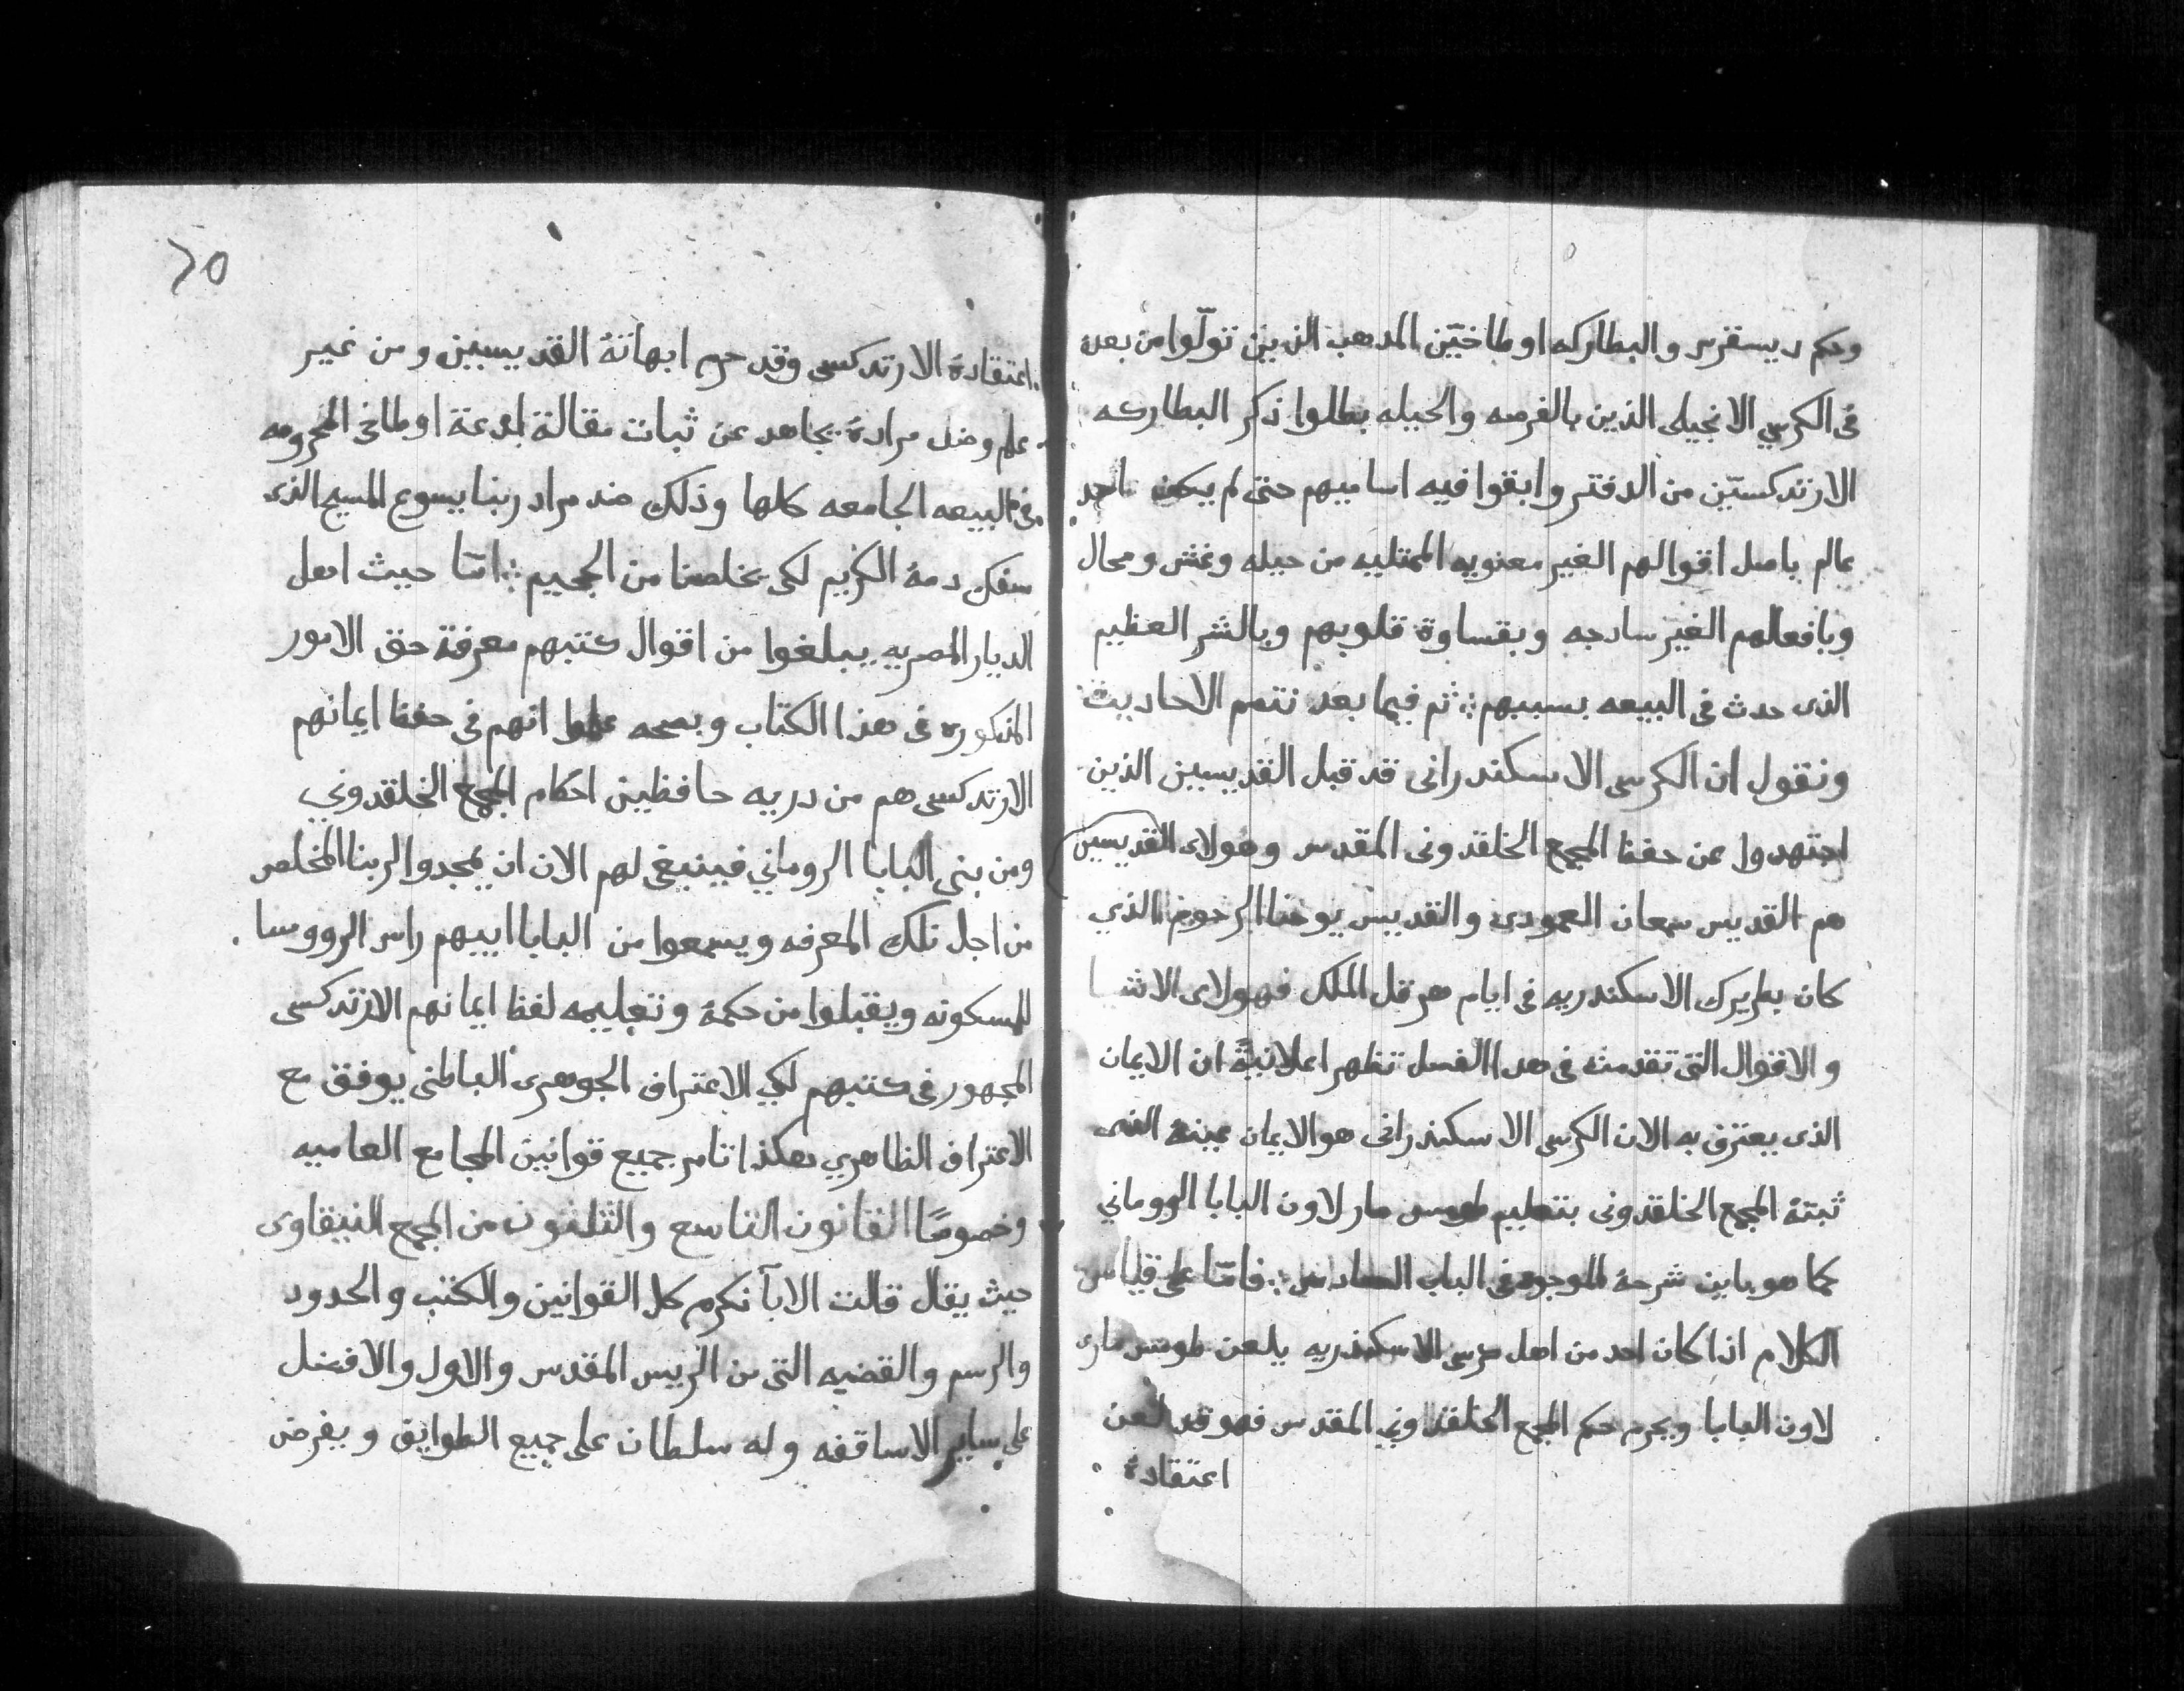 وحكم ديسقرس والبطاركه اوطاخيّن المدهب الذين تولّوا من بعده
فى الكرسي الانجيلى الذين بالفرصه والحيله بطلوا ذكر البطاركه
الارتدكسيّن من الدفتر وابقوا فيه اساميهم حتى لم يكون احد
عالم باصل اقوالهم الغير معنويه الممتليه من حيله وغش ومحال
وبافعالهم الغير سادجه وبقساوة قلوبهم وبالشر العظيم
الذى حدث فى البيعه بسببهم ثم فيما بعد نتمم الاحاديث
ونقول ان الكرسى الاسكندرانى قد قبل القديسيين الذين
اجتهدوا عن حفظ المجمع الخلقدونى المقدس وهولاى القديسين
هم القديس سمعان العمودى والقديس يوحنا الرحوم الذي
كان بطريرك الاسكندريه فى ايام هرقل الملك فهولاى الاشيا
والاقوال التى تقدمت فى هدا الفصل تظهر اعلانيةً ان الايمان
الذى يعترف به الان الكرسى الاسكندرانى هو الايمان عينه الذى
ثبتهُ المجمع الخلقدونى بتعليم طومس مار لاون البابا الروماني
كما هو باين شرحهُ الموجود فى الباب السادس فامّا على قياس
الكلام اذا كان احد من اهل كرسى الاسكندريه يلعن طومس مارى
لاون البابا ويحرم حكم المجمع الخلقدوني المقدس فهو قد لعن
اعتقادهُ
٢٥
اعتقادهُ الارتدكسى وقد حرم ابهاتهُ القديسيين ومن غير
علم وضد مرادهُ يجاهد عن ثبات مقالة بدعة اوطاخى المحرومه
فى البيعه الجامعه كلها وذلك ضد مراد ربنا يسوع المسيح الذى
سفك دمهُ الكريم لكى يخلصنا من الجحيم امّا حيث اهل
الديار المصريه يبلغوا من اقوال كتبهم معرفة حق الامور
المذكوره فى هذا الكتاب وبصحه علموا انهم فى حفظ ايمانهم
الارتدكسى هم من دريه حافظين احكام المجمع الخلقدوني
ومن بنى البابا الروماني فينبغى لهم الان ان يمجدوا لربنا المخلص
من اجل تلك المعرفه ويسمعوا من البابا ابيهم راس الرووسا
للمسكونه ويقبلوا من حكمهُ وتعليمه لفظ ايمانهم الارتدكسى
المجهور فى كتبهم لكي الاعتراف الجوهرى الباطنى يوفق مع
الاعتراف الظاهري هكذا تامر جميع قوانين المجامع العاميه
وخصوصًا القانون التاسع والثلثون من المجمع النيقاوى
حيث يقال قالت الابآ نكرم كل القوانين والكتب والحدود
والرسم والقضيه التى من الريس المقدس والاول والافضل
على ساير الاساقفه وله سلطان على جميع الطوايق وبفرض